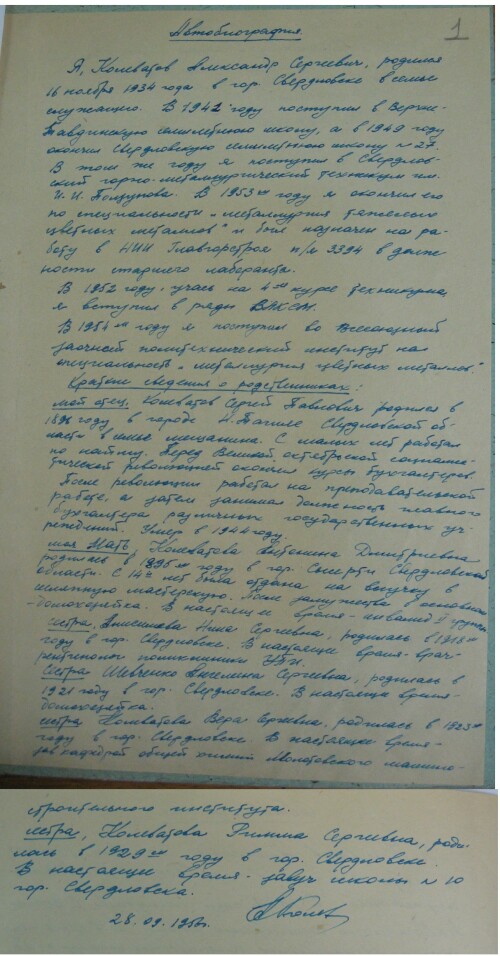 Автобиография.
1
Я, Колеватов Александр Сергеевич, родился
16 ноября 1934 года в гор. Свердловске в семье
служащего. В 1942 году поступил в Верхне-
Тавдинскую семилетнюю школу, а в 1949 году
окончил Свердловскую семилетнюю школу № 27.
В том же году я поступил в Свердлов-
ский горно-металлургический техникум им.
И. И. Ползунова. В 1953ем году я окончил его
по специальности „металлургия тяжелых
цветных металлов" и был назначен на ра-
боту в НИИ Главгорстроя п/я 3394 в долж-
ности старшего лаборанта.
В 1952 году, учась на 4-ом курсе техникума,
я вступил в ряды ВЛКСМ.
В 1954ом году я поступил во Всесоюзный
заочный политехнический институт на
специальность „металлургия цветных металлов."
Краткие сведения о родственниках:
мой отец, Колеватов Сергей Павлович родился в
году в городе Н. Тагиле Свердловской об-
ласти в семье мещанина. С малых лет работал
по найму. Перед Великой октябрьской социалис-
тической революцией окончил курсы бухгалтеров.
После революции работал на преподавательской
работе, а затем занимал должность главного
бухгалтера различных государственных уч-
реждений. Умер в 1944 году.
моя мать, Колеватова Антонина Дмитриевна
родилась в 1895 году в гор. Сысерти Свердловской
области. С 14и лет была отдана на выучку в
мастерскую. После замужества в основном
-домохозяйка. В настоящее время - инвалид II группы
сестра, Анисимова Нина Сергеевна, родилась в 1918ом
году в гор. Свердловске. В настоящее время- врач-
рентгенолог поликлиники УПИ.
Сестра Шевченко Ангелина Сергеевна, родилась в
1921 году в гор. Свердловске. В настоящее время-
домохозяйка.
сестра Колеватова Вера Сергеевна, родилась в 1923ем
году в гор. Свердловске. В настоящее время-
кафедрой общей химии Молотовского машино-
строительного института.
сестра, Колеватова Римма Сергеевна, роди-
лась в 1929ом году в гор. Свердловске.
В настоящее время - завуч школы № 10
гор. Свердловска.
28.09.1956г.